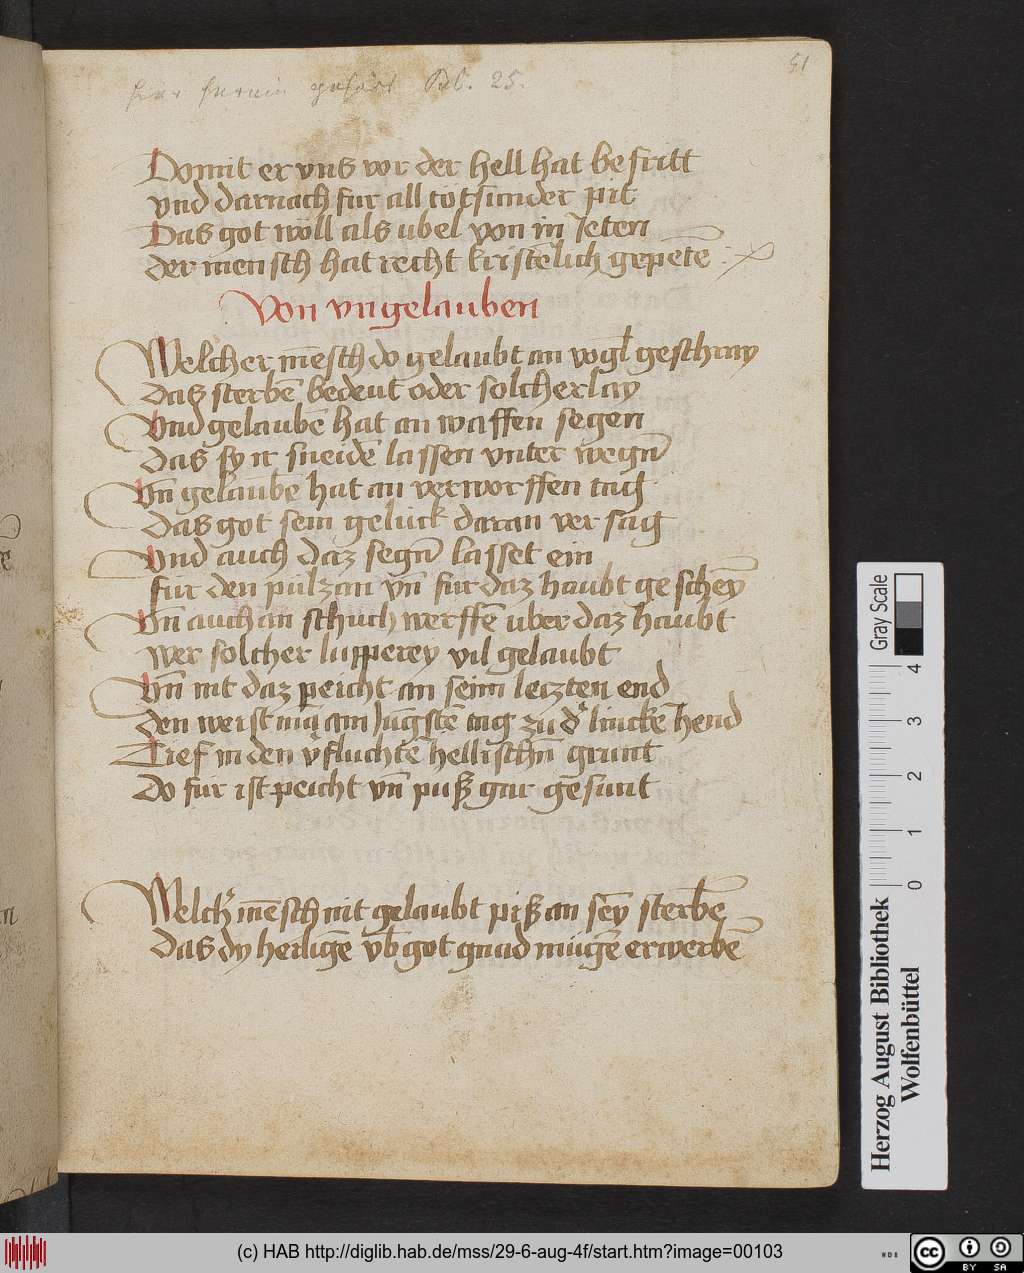 hier herein gehört Bl. 25.
51
Domit er vns vor der hell hat befritt
vnd darnach fur all totsunder pit
Das got wöll als ubel von in Jeten
der mensch hat recht kristelich gepetē
Von vngelauben
Welcher mēsch do gelaubt an vogl geschray
das sterbē bedeut oder solcherlay
Vnd gelaubē hat an waffen segen
das sy it sneidē lassen vnter wegn
Vn̄ gelaubē hat an verworffen tag
das got sein gelück daran versag
Vnd auch daz segn̄ lasset ein
fur den pilzan vn̄ fur daz haubt geschey
Vn̄ auch an schuch werffē uber daz haubt
wer solcher lupperey vil gelaubt
Vn̄ nit daz peicht an seim leczten end
den weist mā am Jūgstē tag zu d' lincke hend
Tief in den v'fluchtē hellischn̄ grunt
Do fur ist peicht vn̄ puß gar gesunt
Welch' mēsch nit gelaubt piß an sey sterbē
das dy heiligē vb got gnad mügē erwerbē
Herzog August Bibliothek
Wolfenbüttel
Gray Scale
0 1 2 3 4
(c) HAB http://diglib.hab.de/mss/29-6-aug-4f/start.htm?image=00103
WDB
cc BY SA